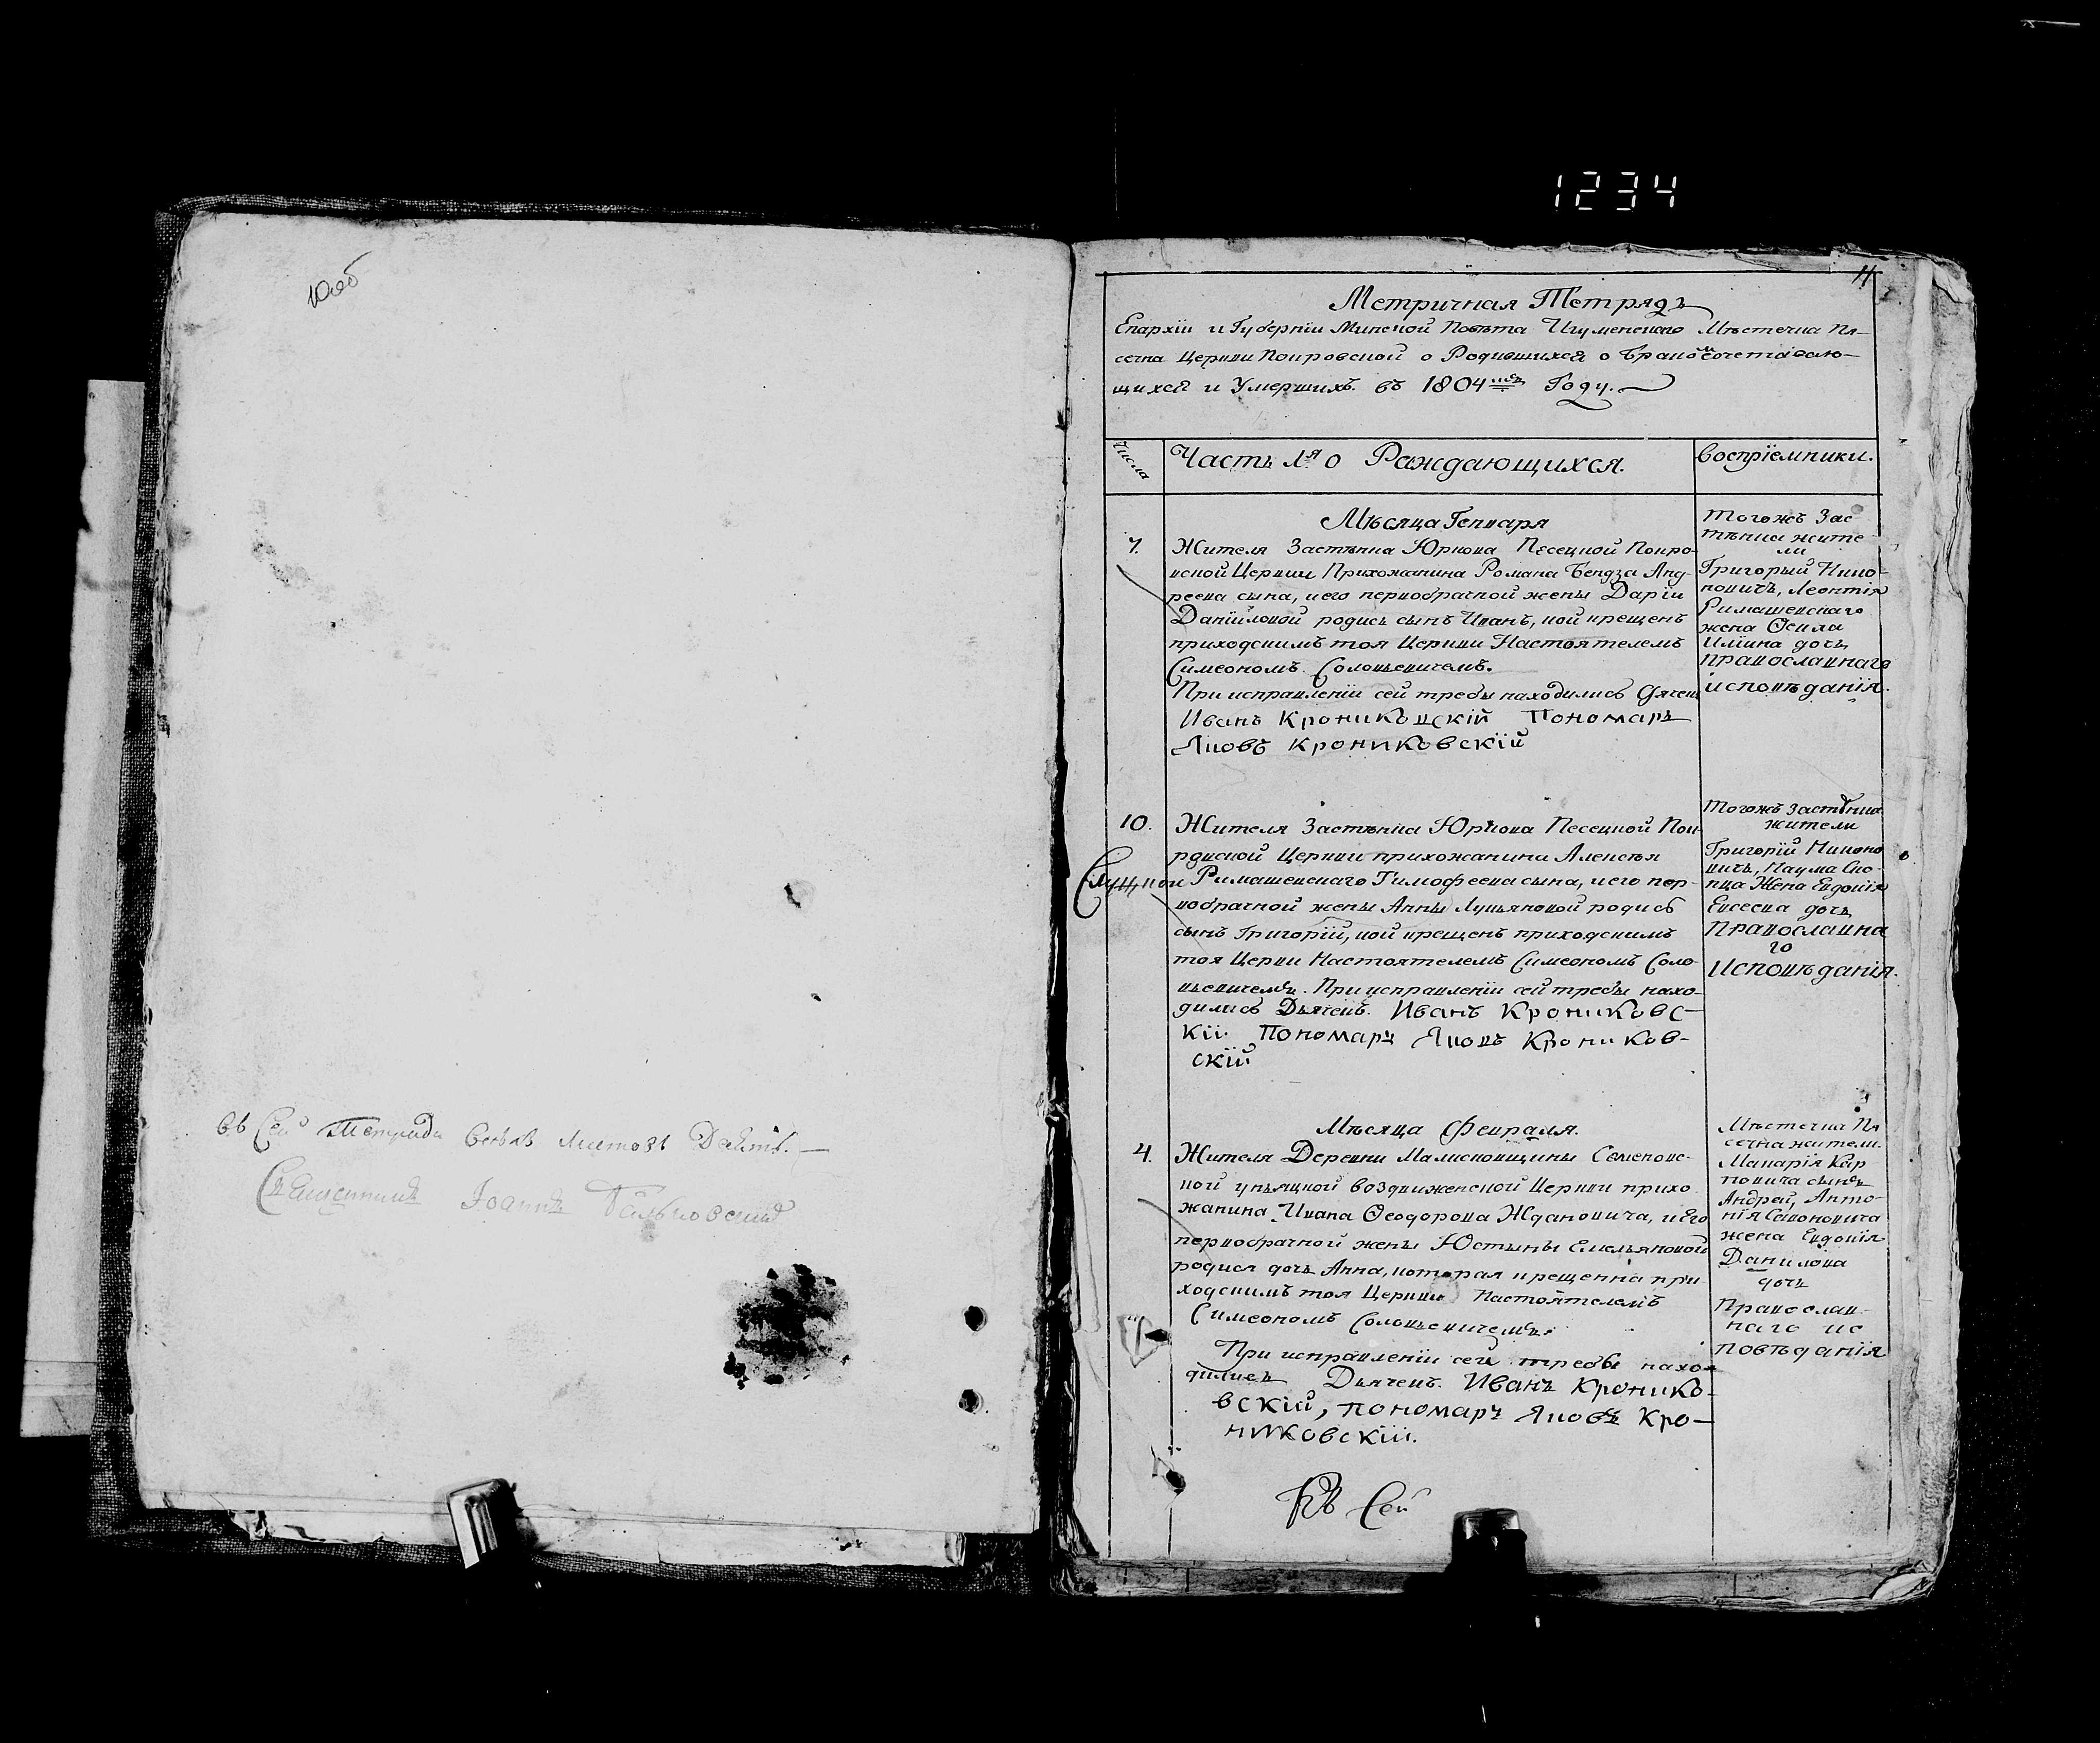 1234
10об
Въ Сей Тетради всехъ листовъ Десять.
Священникъ Іоаннъ
11
Метричная Тетрадь
Епархіи и Губерніи Минской Повѣта Игуменскаго Мѣстечка Пя-
сечна Церкви Покровской о Родившихся о Бракомсочетаваю-
щихся и Умершихъ въ 1804мъ Году.
Числа
Часть 1я о Раждающихся.
Воспріемники.
Мѣсяца Генваря
7.
Жителя Застѣнка Юркова Песецкой Покро-
вской Церкви Прихожанина Романа Бендза Анд-
реева сына, иего первобрачной жены Даріи
Даніиловой родись сынъ Иванъ, кой крещенъ
приходскимъ тоя Церкви Настоятелемъ
Симеономъ Соловьевичемъ.
При исправленіи сей требы находились Дячекъ
Иванъ Крониковскій Пономарь
Яковъ Крониковскій
Тогожъ Зас-
тѣнка жите-
ли
Григорый Мико-
новичъ, Леонтія
Римашевскаго
жена Осила
Иліина дочь
православнаго
исповѣданія.
10.
Жителя Застѣнка Юркова Песецкой Пок-
ровской Церкви прихожанина Алексѣя
Римашевскаго Тимофеева сына, иего пер-
вобрачной жены Анны Лукьяновой родись
сынъ Григорій, кой крещенъ приходскимъ
тоя Церкви Настоятелемъ Симеономъ Соло-
вьевичемъ. При исправленіи сей требы нахо-
дились Дьячекъ. Иванъ Крониковс-
кій Пономарь Яковъ Кроников-
скій
Тогожъ Застѣнка
жители
Григорій Миконо
вичъ, Наума Ско-
пца Жена Евдокія
Евсеева дочь
Православна
го
Исповѣданія.
Мѣсяца Февраля.
4.
Жителя Деревни Малисковщины Семеновс-
кой уніяцкой Воздвиженской Церкви прихо
жанина Ивана Ѳеодорова Ждановича, и Его
первобрачной жены Юстыны Емельяновой
родися дочь Анна, которая крещенна при
ходскимъ тоя Церкви Настоятелемъ
Симеономъ Соловьевичемъ.
При исправленіи сей требы нахо-
дились Дьячекъ. Иванъ Кронико-
вскій, пономарь Яковъ Кро-
никовскій.
Мѣстечка Пя
сечна жители.
Макарія Кар
повича сынъ
Андрей, Анто-
нія Самоновича
жена Евдокія
Данилова
дочь
Православ-
наго ис
повѣданія
Въ Сей